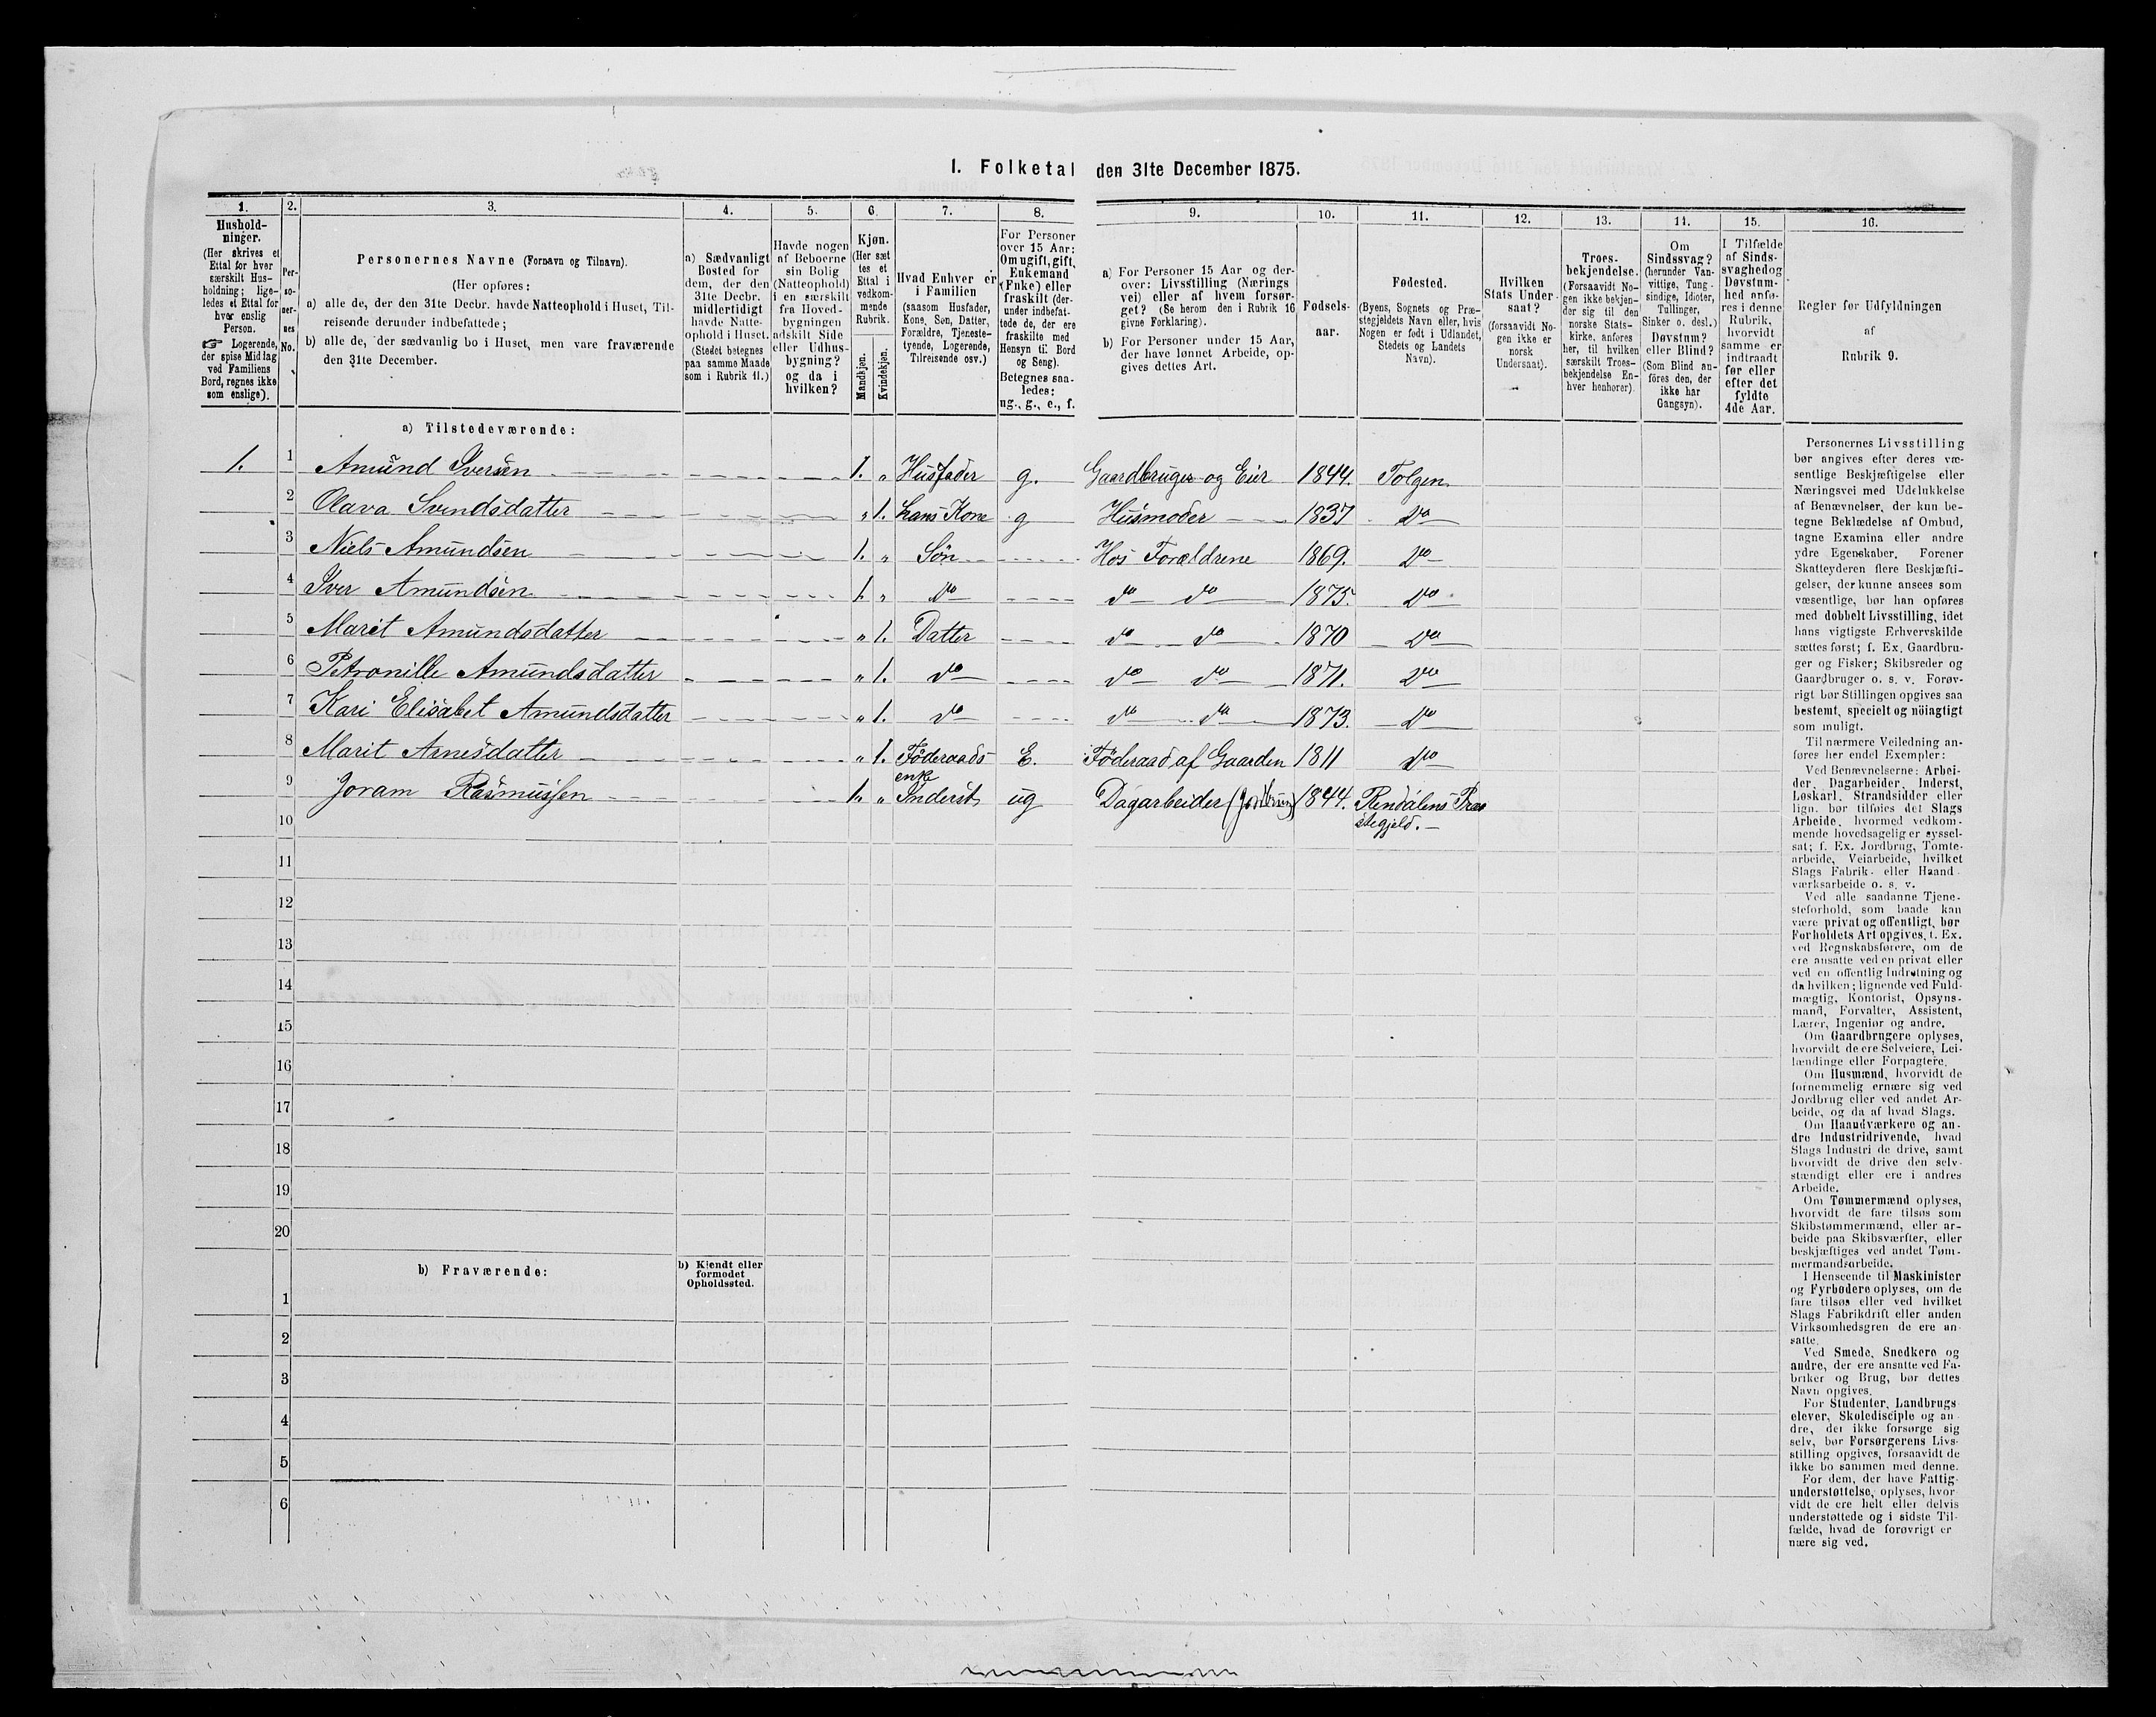 I. Folketal den 31te December 1875.
1.
Hushold-
ninger.
(Her skrives et
Ettal for hver
særskilt Hus-
holdning; lige-
ledes et Ettal for
hver enslig
Person.
☞ Logerende,
der spise Middag
ved Familiens
Bord, regnes ikke
som enslige).
2.
Per-
so-
ner-
nes
No.
3.
Personernes Navne (Fornavn og Tilnavn).
(Her opføres:
a) alle de, der den 31te Decbr. havde Natteophold i Huset, Til-
reisende derunder indbefattede;
b) alle de, der sædvanlig bo i Huset, men vare fraværende
den 31te December.
4.
a) Sædvanligt
Bosted for
dem, der den
31te Decbr.
midlertidigt
havde Natte-
ophold i Huset.
(Stedet betegnes
paa samme Maade
som i Rubrik 11.)
5.
Havde nogen
af Beboerne
sin Bolig
(Natteophold)
i en særskilt
fra Hoved-
bygningen
adskilt Side
eller Udhus-
bygning?
og da i
hvilken?
6.
Kjøn.
(Her sæt
tes et
Ettal i
vedkom-
mende
Rubrik.
Mandkjøn.
Kvindekjøn.
7.
Hvad Enhver er
i Familien
(saasom Husfader,
Kone, Søn, Datter,
Forældre, Tjeneste-
tyende, Logerende,
Tilreisende osv.)
8.
For Personer
over 15 Aar:
Om ugift, gift,
Enkemand
(Enke) eller
fraskilt (der-
under indbefat-
tede de, der ere
fraskilte med
Hensyn til Bord
og Seng).
Betegnes saa-
ledes:
ug., g., e., f.
9.
a) For Personer 15 Aar og der-
over: Livsstilling (Nærings
vei) eller af hvem forsør-
get? (Se herom den i Rubrik 16
givne Forklaring).
b) For Personer under 15 Aar,
der have lønnet Arbeide, op-
gives dettes Art.
10.
Fødsels-
aar.
11.
Fødested.
(Byens, Sognets og Præ-
stegjeldets Navn eller, hvis
Nogen er født i Udlandet,
Stedets og Landets
Navn).
12.
Hvilken
Stats Under-
saat?
(forsaavidt No-
gen ikke er
norsk
Undersaat).
13.
Troes-
bekjendelse.
(Forsaavidt No-
gen ikke bekjen-
der sig til den
norske Stats-
kirke, anføres
her, til hvilken
særskilt Troes-
bekjendelse En-
hver henhører).
14.
Om
Sindssvag?
(herunder Van-
vittige, Tung-
sindige, Idioter,
Tullinger,
Sinker o. desl.)
Døvstum?
eller Blind?
(Som Blind an-
føres den, der
ikke har
Gangsyn).
15.
I Tilfælde
af Sinds-
svaghed og
Døvstum-
hed anfø-
res i denne
Rubrik,
hvorvidt
samme er
indtraadt
før eller
efter det
fyldte
4de Aar.
16.
Regler for Udfyldningen
af
Rubrik 9.
a) Tilstedeværende:
1. 1 Amund Iversen 1. „ Husfader g. Gaardbruger og Eier 1844. Tolgen.
2 Olava Svendsdatter „ 1. hans Kone g Husmoder 1837 Do
3 Niels Amundsen 1. „ Søn Hos Forældrene 1869. Do
4 Iver Amundsen 1. „ do do do 1875. Do
5 Marit Amundsdatter „ 1. Datter do do 1870 Do
6 Petronille Amundsdatter „ 1. do do do 1871. Do
7 Kari Elisabet Amundsdatter „ 1. do do do 1873. Do
8 Marit Arnesdatter „ 1. Föderaads E. Föderaad af Gaarden 1811 Do
enke
9 Joram Rasmussen 1. „ Inderst ug Dagarbeider (Jordbrug) 1844. Rendalens Præ
stegjeld.
10
11
12
13
14
15
16
17
18
19
20
b) Fraværende:
b) Kjendt eller
formodet
Opholdssted.
1
2
3
4
5
6
Personernes Livsstilling
bør angives efter deres væ-
sentlige Beskjæftigelse eller
Næringsvei med Udelukkelse
af Benævnelser, der kun be-
tegne Beklædelse af Ombud,
tagne Examina eller andre
ydre Egenskaber. Forener
Skatteyderen flere Beskjæfti-
gelser, der kunne ansees som
væsentlige, bør han opføres
med dobbelt Livsstilling, idet
hans vigtigste Erhvervskilde
sættes først; f. Ex. Gaardbru-
ger og Fisker; Skibsreder og
Gaardbruger o. s. v. Forøv-
rigt bør Stillingen opgives saa
bestemt, specielt og nöiagtigt
som muligt.
Til nærmere Veiledning an-
føres her endel Exempler:
Ved Benævnelserne: Arbei-
der, Dagarbeider, Inderst,
Løskarl, Strandsidder eller
lign. bør tilføies det Slags
Arbeide, hvormed vedkom-
mende hovedsagelig er syssel-
sat; f. Ex. Jordbrug, Tomte-
arbeide, Veiarbeide, hvilket
Slags Fabrik- eller Haand-
værksarbeide o. s. v.
Ved alle saadanne Tjene-
steforhold, som baade kan
være privat og offentligt, bør
Forholdets Art opgives, f. Ex.
ved Regnskabsførere, om de
ere ansatte ved en privat eller
ved en offentlig Indretning og
da hvilken; lignende ved Fuld-
mægtig, Kontorist, Opsyns-
mand, Forvalter, Assistent,
Lærer, Ingeniør og andre.
Om Gaardbrugere oplyses,
hvorvidt de ere Selveiere, Lei-
lændinge eller Forpagtere.
Om Husmænd, hvorvidt de
fornemmelig ernære sig ved
Jordbrug eller ved andet Ar-
beide, og da af hvad Slags.
Om Haandværkere og an-
dre Industridrivende, hvad
Slags Industri de drive, samt
hvorvidt de drive den selv-
stændigt eller ere i andres
Arbeide.
Om Tømmermænd oplyses,
hvorvidt de fare tilsøs som
Skibstømmermænd, eller ar-
beide paa Skibsværfter, eller
beskjæftiges ved andet Tøm-
mermandsarbeide.
I Henseende til Maskinister
og Fyrbødere oplyses, om de
fare tilsøs eller ved hvilket
Slags Fabrikdrift eller anden
Virksomhedsgren de ere an-
satte.
Ved Smede, Snedkere og
andre, der ere ansatte ved Fa-
briker og Brug, bør dettes
Navn opgives.
For Studenter, Landbrugs
elever, Skoledisciple og an-
dre, der ikke forsørge sig
selv, bør Forsørgerens Livs-
stilling opgives, forsaavidt de
ikke bo sammen med denne.
For dem, der have Fattig-
understøttelse, oplyses, hvor-
vidt de ere helt eller delvis
understøttede og i sidste Til-
fælde, hvad de forøvrigt er
nære sig ved.